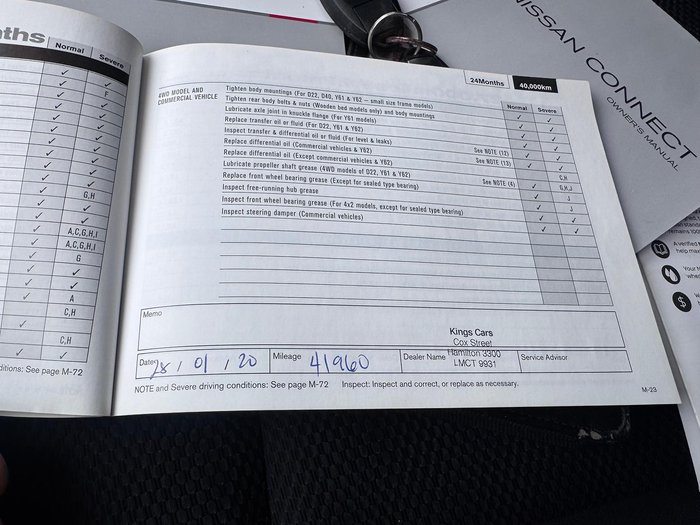 ths
Normal
Severe
✓ ✓
✓ F
✓ ✓
✓ ✓
✓ ✓
G,H
✓ ✓
✓ A,C,G,H,I
✓ A,C,G,H,I
✓ G
✓ ✓
✓ A
C,H
✓
C,H
✓ ✓
ditions: See page M-72
24Months 40,000km
4WD MODEL AND
COMMERCIAL VEHICLE
Normal Severe
Tighten body mountings (For D22, D40, Y61 & Y62 – small size frame models)
Tighten rear body bolts & nuts (Wooden bed models only) and body mountings
Lubricate axle joint in knuckle flange (For Y61 models)
Replace transfer oil or fluid (For D22, Y61 & Y62)
Inspect transfer & differential oil or fluid (For level & leaks)
Replace differential oil (Commercial vehicles & Y62) See NOTE (12)
Replace differential oil (Except commercial vehicles & Y62) See NOTE (13)
Lubricate propeller shaft grease (4WD models of D22, Y61 & Y62)
Replace front wheel bearing grease (Except for sealed type bearing) See NOTE (4)
Inspect free-running hub grease
Inspect front wheel bearing grease (For 4x2 models, except for sealed type bearing)
Inspect steering damper (Commercial vehicles)
C,H
G,H,J
J
J
Memo
Kings Cars
Cox Street
Hamilton 3300
LMCT 9931
Date 28 / 01 / 20 Mileage 41960 Dealer Name Service Advisor
NOTE and Severe driving conditions: See page M-72 Inspect: Inspect and correct, or replace as necessary.
M-23
NISSAN CONNECT
OWNER'S MANUAL
remains 100%
A verified
help max
Your
when
$